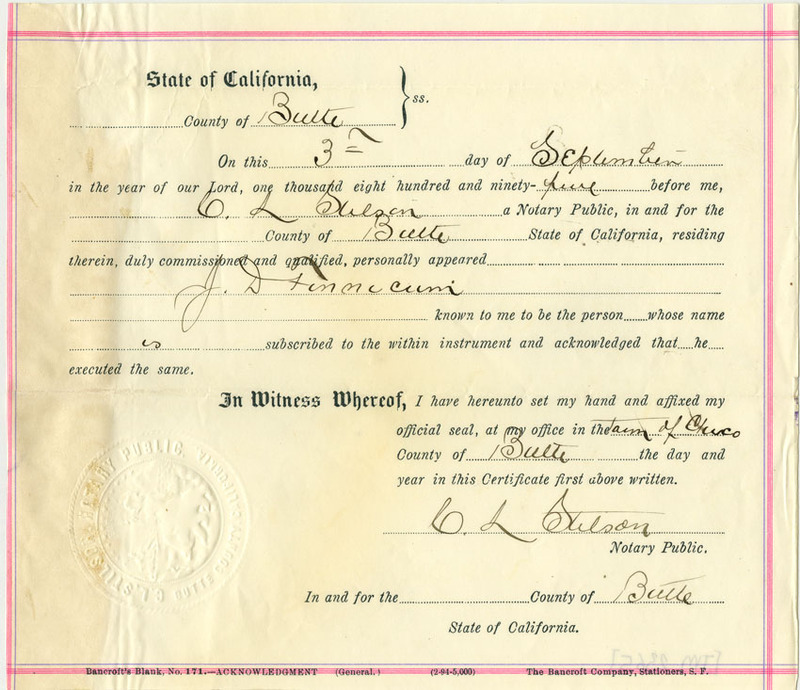 State of California,
County of Butte } ss.
On this 3rd day of September
in the year of our Lord, one thousand eight hundred and ninety-five before me,
C. L. Stilson a Notary Public, in and for the
County of Butte State of California, residing
therein, duly commissioned and qualified, personally appeared
J. D. Finnicum
known to me to be the person whose name
is subscribed to the within instrument and acknowledged that he
executed the same.
In Witness Whereof, I have hereunto set my hand and affixed my
official seal, at my office in the town of Chico
County of Butte the day and
year in this Certificate first above written.
C. L. Stilson
Notary Public.
In and for the County of Butte
State of California.
C. L. STILSON NOTARY PUBLIC
BUTTE COUNTY CALIFORNIA
Bancroft's Blank, No. 171.—ACKNOWLEDGMENT (General.) (2-94-5,000) The Bancroft Company, Stationers, S. F.